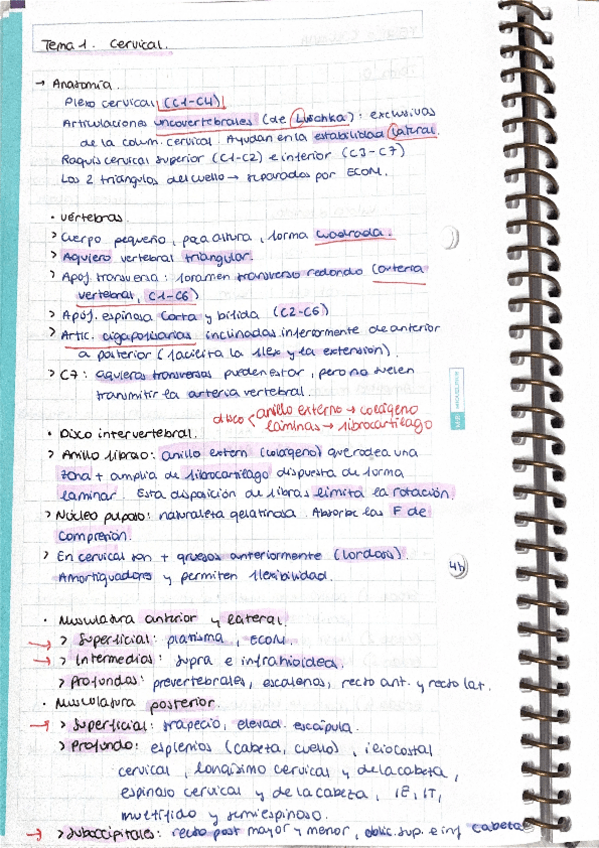 Tema 1. Cervical.
→ Anatomía.
Plexo cervical (C1-C4)
Articulaciones uncovertebrales (de Luschka): exclusivas
de la colum. cervical. Ayudan en la estabilidad lateral.
Raquis cervical superior (C1-C2) e inferior (C3-C7)
Los 2 triángulos del cuello → separados por ECOM.
· Vértebras.
> Cuerpo pequeño, poca altura, forma cuadrada.
> Agujero vertebral triangular.
> Apóf. transversa: foramen transverso redondo (arteria
vertebral, C1-C6)
> Apóf. espinosa corta y bífida (C2-C6)
> Artic. cigapofisarias inclinadas inferiormente de anterior
a posterior (facilita la flex y la extensión).
> C7: agujeros transversos pueden estar, pero no suelen
transmitir la arteria vertebral.
disco < anillo externo → colágeno
láminas → fibrocartílago
· Disco intervertebral.
> Anillo fibroso: anillo extern (colágeno) que rodea una
zona + amplia de fibrocartílago dispuesta de forma
laminar. Esta disposición de fibras limita la rotación.
> Núcleo pulposo: naturaleza gelatinosa. Absorbe las F de
compresión.
> En cervical son + gruesos anteriormente (lordosis).
Amortiguadores y permiten flexibilidad.
4b
· Musculatura anterior y lateral.
→ > Superficial: platisma, ECOM.
→ > Intermedias: supra e infrahioidea.
> Profundas: prevertebrales, escalenos, recto ant. y recto lat.
· Musculatura posterior.
→ > Superficial: trapecio, elevad. escápula.
> Profundo: esplenios (cabeza, cuello), iliocostal
cervical, longísimo cervical y de la cabeza,
espinoso cervical y de la cabeza, IE, IT,
multífido y semiespinoso.
→ > Suboccipitales: recto post mayor y menor, oblic. sup. e inf cabeza